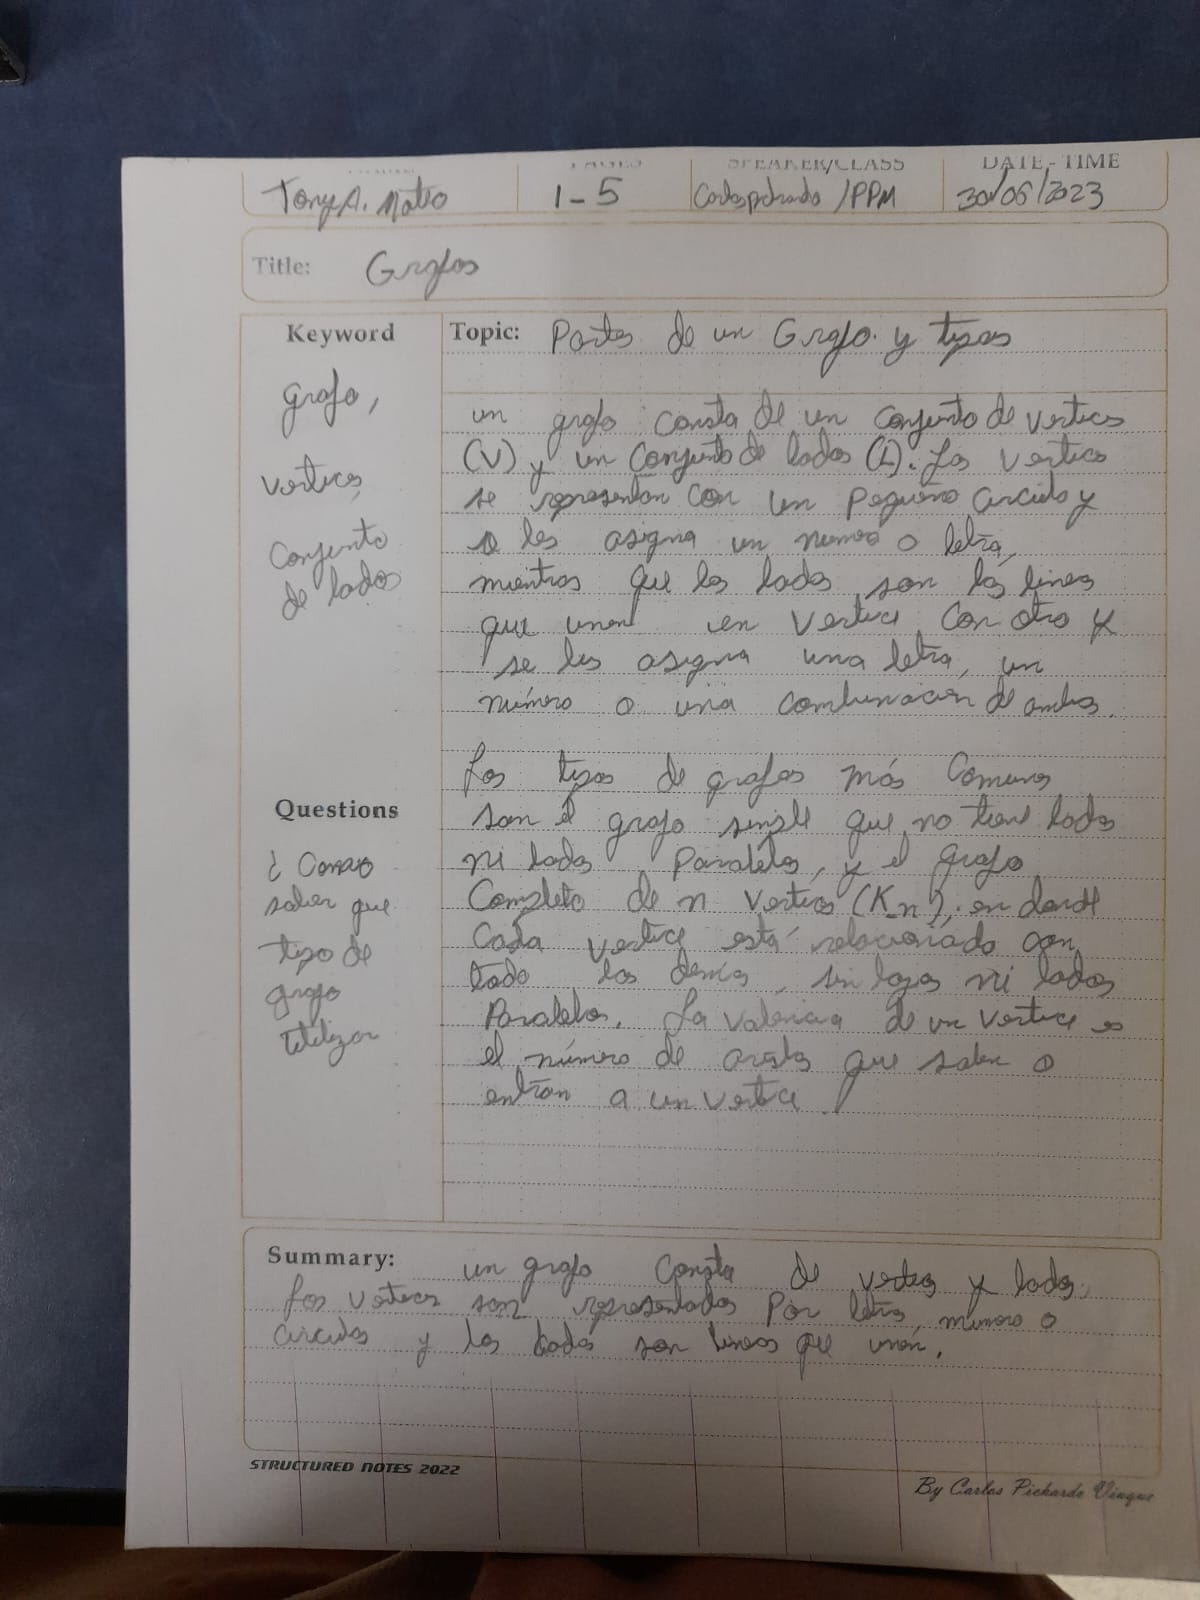 PAGES SPEAKER/CLASS DATE - TIME
Tony A. Mateo 1-5 /PPM 30/06/2023
Title: Grafos
Keyword
grafo,
vertices,
Conjunto
de lados
Questions
¿ Como
saber que
tipo de
grafo
Utilizar
Topic: Partes de un Grafo. y tipos
un grafo consta de un conjunto de vertices
(V) y un conjunto de lados (L). Los vertices
se representan con un pequeño circulo y
se les asigna un numero o letra,
mientras que los lados son las lineas
que unen un vertice con otro y
se les asigna una letra, un
número o una combinacion de ambos.
Los tipos de grafos más comunes
son el grafo simple que no tiene lados
ni lados paralelos, y el grafo
Completo de n vertices (K_n), en donde
Cada vertice está relacionado con
todo los demás, sin lazos ni lados
Paralelos. La valencia de un vertice es
el número de aristas que salen o
entran a un vertice.
Summary: un grafo consta de vertices y lados,
Los vertices son representados por letra, numero o
circulos y los lados son lineas que unen.
STRUCTURED NOTES 2022
By Carlos Pichardo Viuque